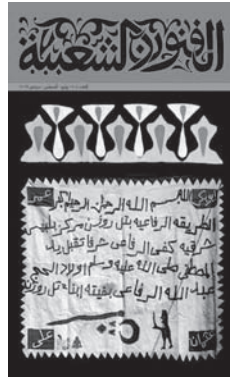 الفنون الشعبية
عمر بسم الله الرحمن الرحيم
الطريقه الرفاعيه بتل روزن مركز بلبيس
شرقيه كفى الرفاعى شرفا تقبيل يد
المصطفى صلى الله عليه وسلم اولاد الحج
عبد الله الرفاعى بقيته ابناء تل روزن
على عثمان